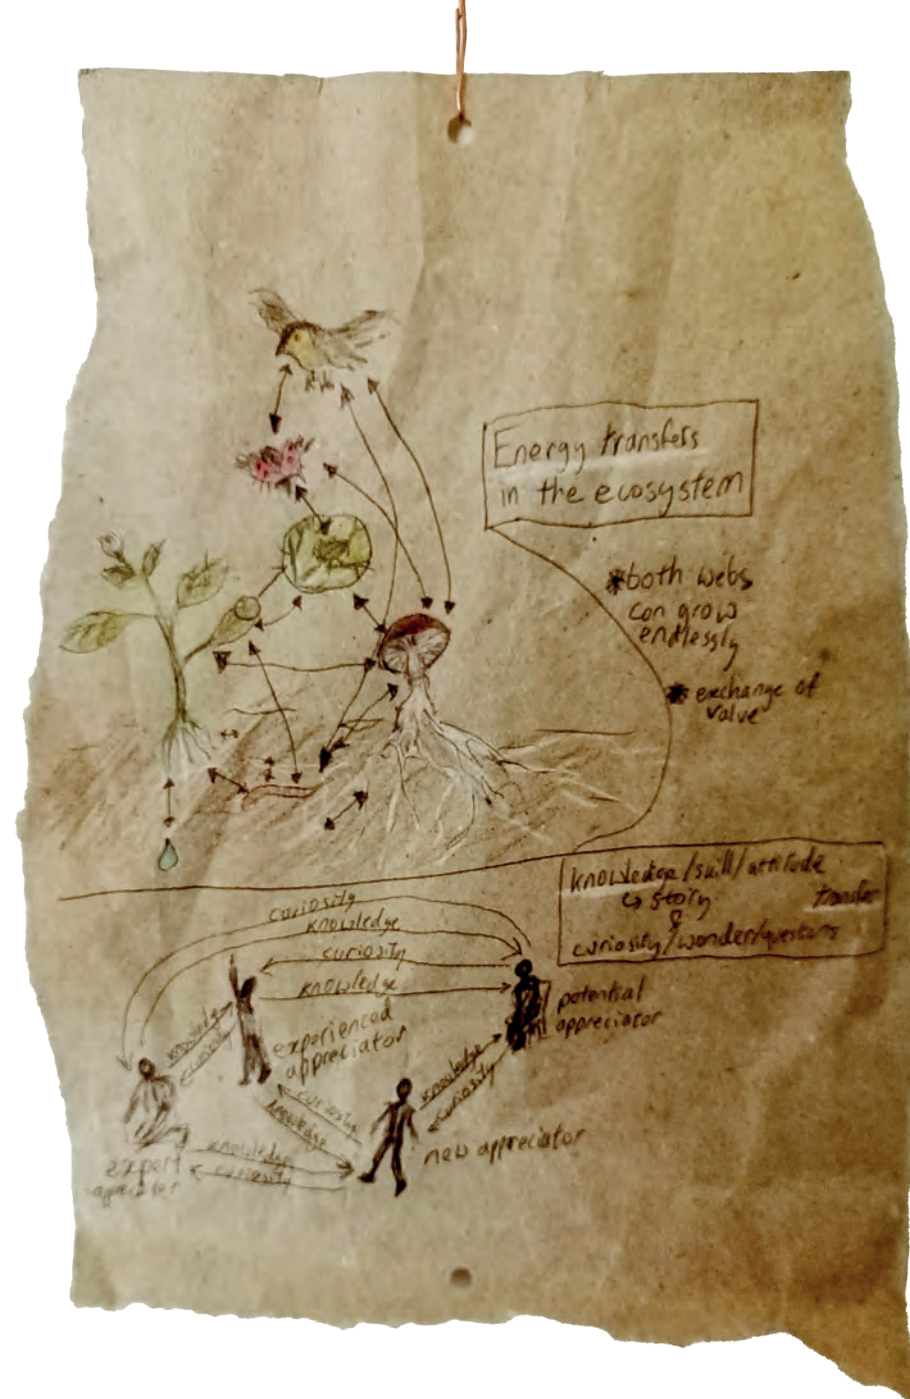 Energy transfers
in the ecosystem
*both webs
can grow
endlessly
*exchange of
value
knowledge/skill/attitude
↳ story transfer
&
curiosity/wonder/questions
curiosity
knowledge
curiosity
knowledge
potential
appreciator
knowledge
curiosity
experienced
appreciator
knowledge
curiosity
curiosity
knowledge
new appreciator
knowledge
curiosity
expert
appreciator